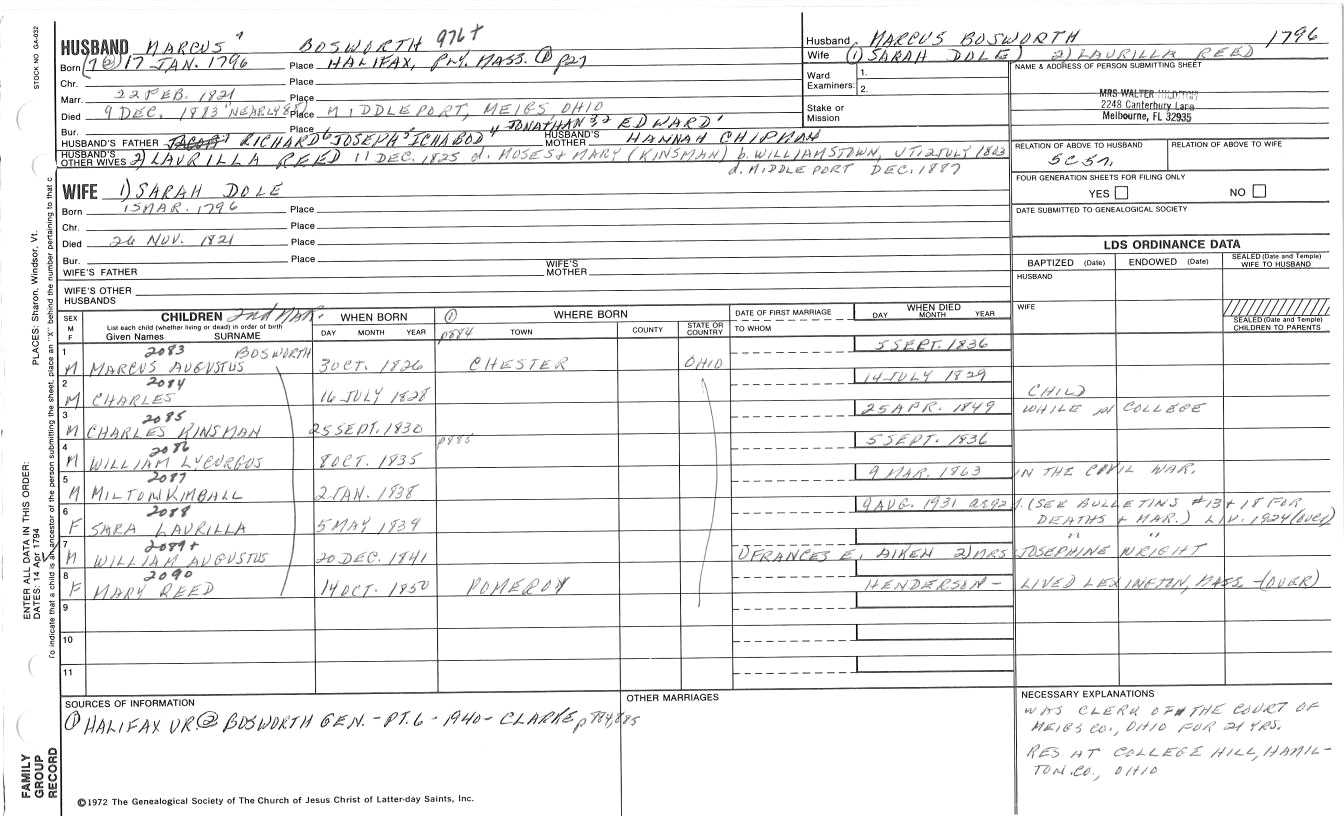 STOCK NO. GA-032
HUSBAND MARCUS 7 BOSWORTH 976+
Born 17 JAN. 1796 Place HALIFAX, Ply. MASS. ① p27
Chr. Place
Marr. 22 FEB. 1821 Place
Died 9 DEC. 1883 "NEARLY 88" Place MIDDLEPORT, MEIGS, OHIO
Bur. Place
HUSBAND'S FATHER RICHARD 6 JOSEPH 5 ICHABOD 4 JONATHAN 3,2 EDWARD 1 HUSBAND'S MOTHER HANNAH CHIPMAN
HUSBAND'S OTHER WIVES 2) LAURILLA REED 11 DEC. 1825 d. MOSES + MARY (KINSMAN) b. WILLIAMSTOWN, VT. 12 JULY 1803
d. MIDDLEPORT DEC. 1887
Husband MARCUS BOSWORTH 1796
Wife 1) SARAH DOLE) 2) LAURILLA REED
Ward Examiners: 1.
2.
Stake or Mission
NAME & ADDRESS OF PERSON SUBMITTING SHEET
MRS WALTER
2248 Canterbury Lane
Melbourne, FL 32935
RELATION OF ABOVE TO HUSBAND
RELATION OF ABOVE TO WIFE
5C5r.
FOUR GENERATION SHEETS FOR FILING ONLY
YES NO
DATE SUBMITTED TO GENEALOGICAL SOCIETY
LDS ORDINANCE DATA
BAPTIZED (Date) ENDOWED (Date) SEALED (Date and Temple) WIFE TO HUSBAND
HUSBAND
WIFE
SEALED (Date and Temple) CHILDREN TO PARENTS
WIFE 1) SARAH DOLE
Born 15 MAR. 1796 Place
Chr. Place
Died 26 NOV. 1821 Place
Bur. Place
WIFE'S FATHER WIFE'S MOTHER
WIFE'S OTHER HUSBANDS
SEX M F
CHILDREN 2nd MAR.
List each child (whether living or dead) in order of birth
Given Names SURNAME
WHEN BORN
DAY MONTH YEAR
① WHERE BORN
p884 TOWN COUNTY STATE OR COUNTRY
DATE OF FIRST MARRIAGE
TO WHOM
WHEN DIED
DAY MONTH YEAR
1 M 2083 MARCUS AUGUSTUS BOSWORTH 3 OCT. 1826 CHESTER OHIO 5 SEPT. 1836
2 M 2084 CHARLES 16 JULY 1828 14 JULY 1829 CHILD
3 M 2085 CHARLES KINSMAN 25 SEPT. 1830 25 APR. 1849 WHILE IN COLLEGE
4 M 2086 WILLIAM LYCURGUS 8 OCT. 1835 p885 5 SEPT. 1836
5 M 2087 MILTON KIMBALL 2 JAN. 1838 9 MAR. 1863 IN THE CIVIL WAR.
6 F 2088 SARA LAURILLA 5 MAY 1839 9 AUG. 1931 ag 92 y. (SEE BULLETINS #13 + 18 FOR
DEATHS + MAR.) LIV. 1924 (OVER)
7 M 2089+ WILLIAM AUGUSTUS 20 DEC. 1841 1) FRANCES E. AIKEN 2) MRS JOSEPHINE WRIGHT " "
8 F 2090 MARY REED 14 OCT. 1850 POMEROY HENDERSON - LIVED LEXINGTON, MASS. - (OVER)
9
10
11
SOURCES OF INFORMATION
① HALIFAX VR. ② BOSWORTH GEN. - PT. 6 - 1940 - CLARKE p 884, 885
OTHER MARRIAGES
NECESSARY EXPLANATIONS
WAS CLERK OF THE COURT OF
MEIGS CO., OHIO FOR 21 YRS.
RES AT COLLEGE HILL, HAMIL-
TON CO., OHIO
©1972 The Genealogical Society of The Church of Jesus Christ of Latter-day Saints, Inc.
FAMILY GROUP RECORD
ENTER ALL DATA IN THIS ORDER:
DATES: 14 Apr 1794
PLACES: Sharon, Windsor, Vt.
To indicate that a child is an ancestor of the person submitting the sheet, place an "X" behind the number pertaining to that c